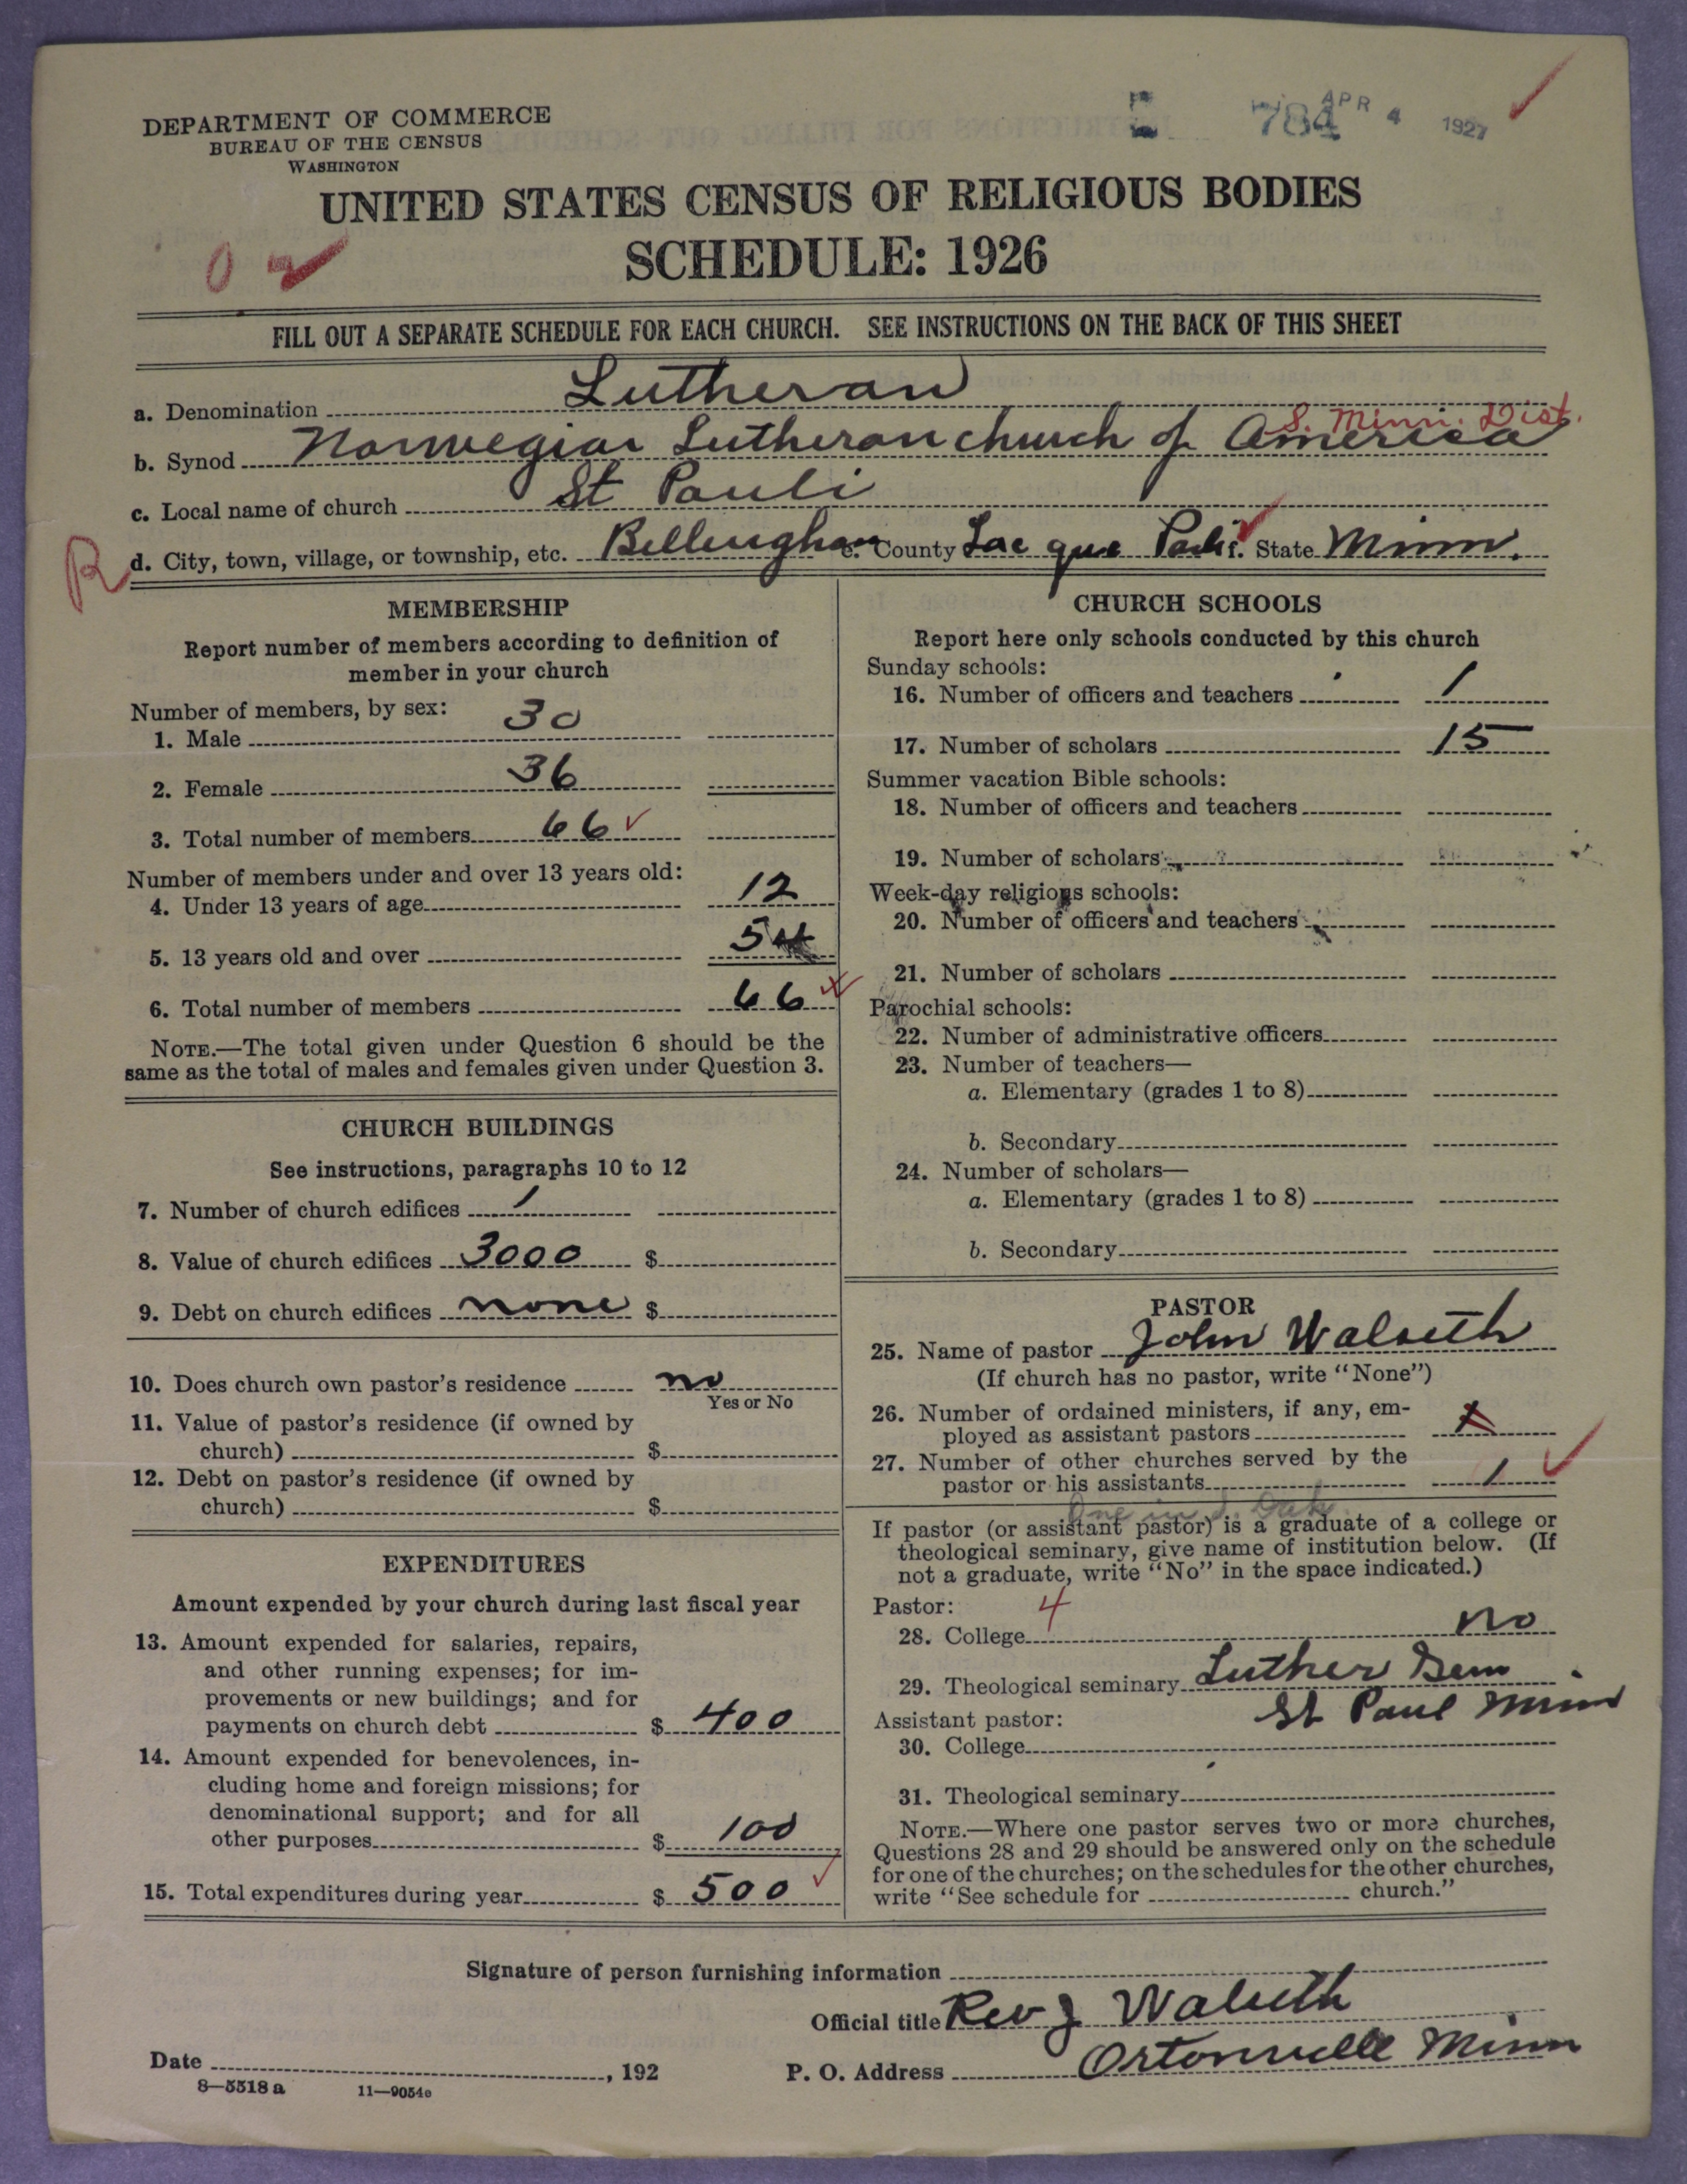 DEPARTMENT OF COMMERCE
BUREAU OF THE CENSUS
WASHINGTON
784 APR 4 1927
UNITED STATES CENSUS OF RELIGIOUS BODIES
SCHEDULE: 1926
FILL OUT A SEPARATE SCHEDULE FOR EACH CHURCH. SEE INSTRUCTIONS ON THE BACK OF THIS SHEET
a. Denomination Lutheran
S. Minn. Dist.
b. Synod Norwegian Lutheran church of America
c. Local name of church St Pauli
R d. City, town, village, or township, etc. Bellingham e. County Lac que Parle f. State Minn.
MEMBERSHIP
Report number of members according to definition of
member in your church
Number of members, by sex:
1. Male 30
2. Female 36
3. Total number of members 66
Number of members under and over 13 years old:
4. Under 13 years of age 12
5. 13 years old and over 54
6. Total number of members 66
NOTE.—The total given under Question 6 should be the
same as the total of males and females given under Question 3.
CHURCH BUILDINGS
See instructions, paragraphs 10 to 12
7. Number of church edifices 1
8. Value of church edifices 3000 $
9. Debt on church edifices none $
10. Does church own pastor's residence no
Yes or No
11. Value of pastor's residence (if owned by
church) $
12. Debt on pastor's residence (if owned by
church) $
EXPENDITURES
Amount expended by your church during last fiscal year
13. Amount expended for salaries, repairs,
and other running expenses; for im-
provements or new buildings; and for
payments on church debt $ 400
14. Amount expended for benevolences, in-
cluding home and foreign missions; for
denominational support; and for all
other purposes $ 100
15. Total expenditures during year $ 500
CHURCH SCHOOLS
Report here only schools conducted by this church
Sunday schools:
16. Number of officers and teachers 1
17. Number of scholars 15
Summer vacation Bible schools:
18. Number of officers and teachers
19. Number of scholars
Week-day religious schools:
20. Number of officers and teachers
21. Number of scholars
Parochial schools:
22. Number of administrative officers
23. Number of teachers—
a. Elementary (grades 1 to 8)
b. Secondary
24. Number of scholars—
a. Elementary (grades 1 to 8)
b. Secondary
PASTOR
25. Name of pastor John Walseth
(If church has no pastor, write "None")
26. Number of ordained ministers, if any, em-
ployed as assistant pastors
27. Number of other churches served by the
pastor or his assistants 1
One in S. Dak.
If pastor (or assistant pastor) is a graduate of a college or
theological seminary, give name of institution below. (If
not a graduate, write "No" in the space indicated.)
Pastor: 4
28. College no
29. Theological seminary Luther Sem
St Paul Minn
Assistant pastor:
30. College
31. Theological seminary
NOTE.—Where one pastor serves two or more churches,
Questions 28 and 29 should be answered only on the schedule
for one of the churches; on the schedules for the other churches,
write "See schedule for church."
Signature of person furnishing information
Official title Rev J Walseth
Date , 192 P. O. Address Ortonville Minn
8—5518 a 11—9054e